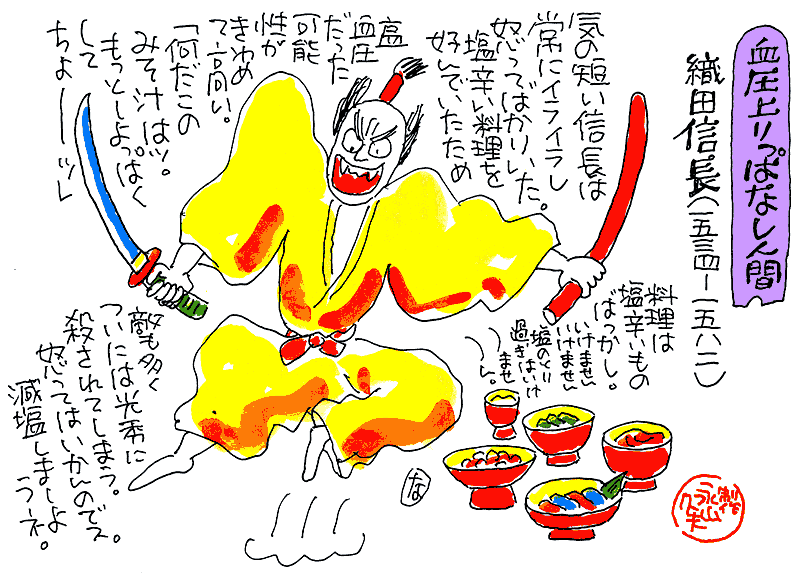 血圧上りっぱなし人間
織田信長(一五三四ー一五八二)
気の短い信長は
常にイライラし
怒ってばかりいた。
塩辛い料理を
好んでいたため
高
血圧
だった
可能
性が
きわめ
て高い。
「何だこの
みそ汁はッ。
もっとしよっぱく
して
ちょーーッ」
料理は
塩辛いもの
ばっかし。
いけません
いけません
塩のとり
過ぎはいけ
ませ
ん。
敵も多く
ついには光秀に
殺されてしまう。
怒ってはいかんのでス。
減塩しましよ
うネ。
な
制作
永山
久夫